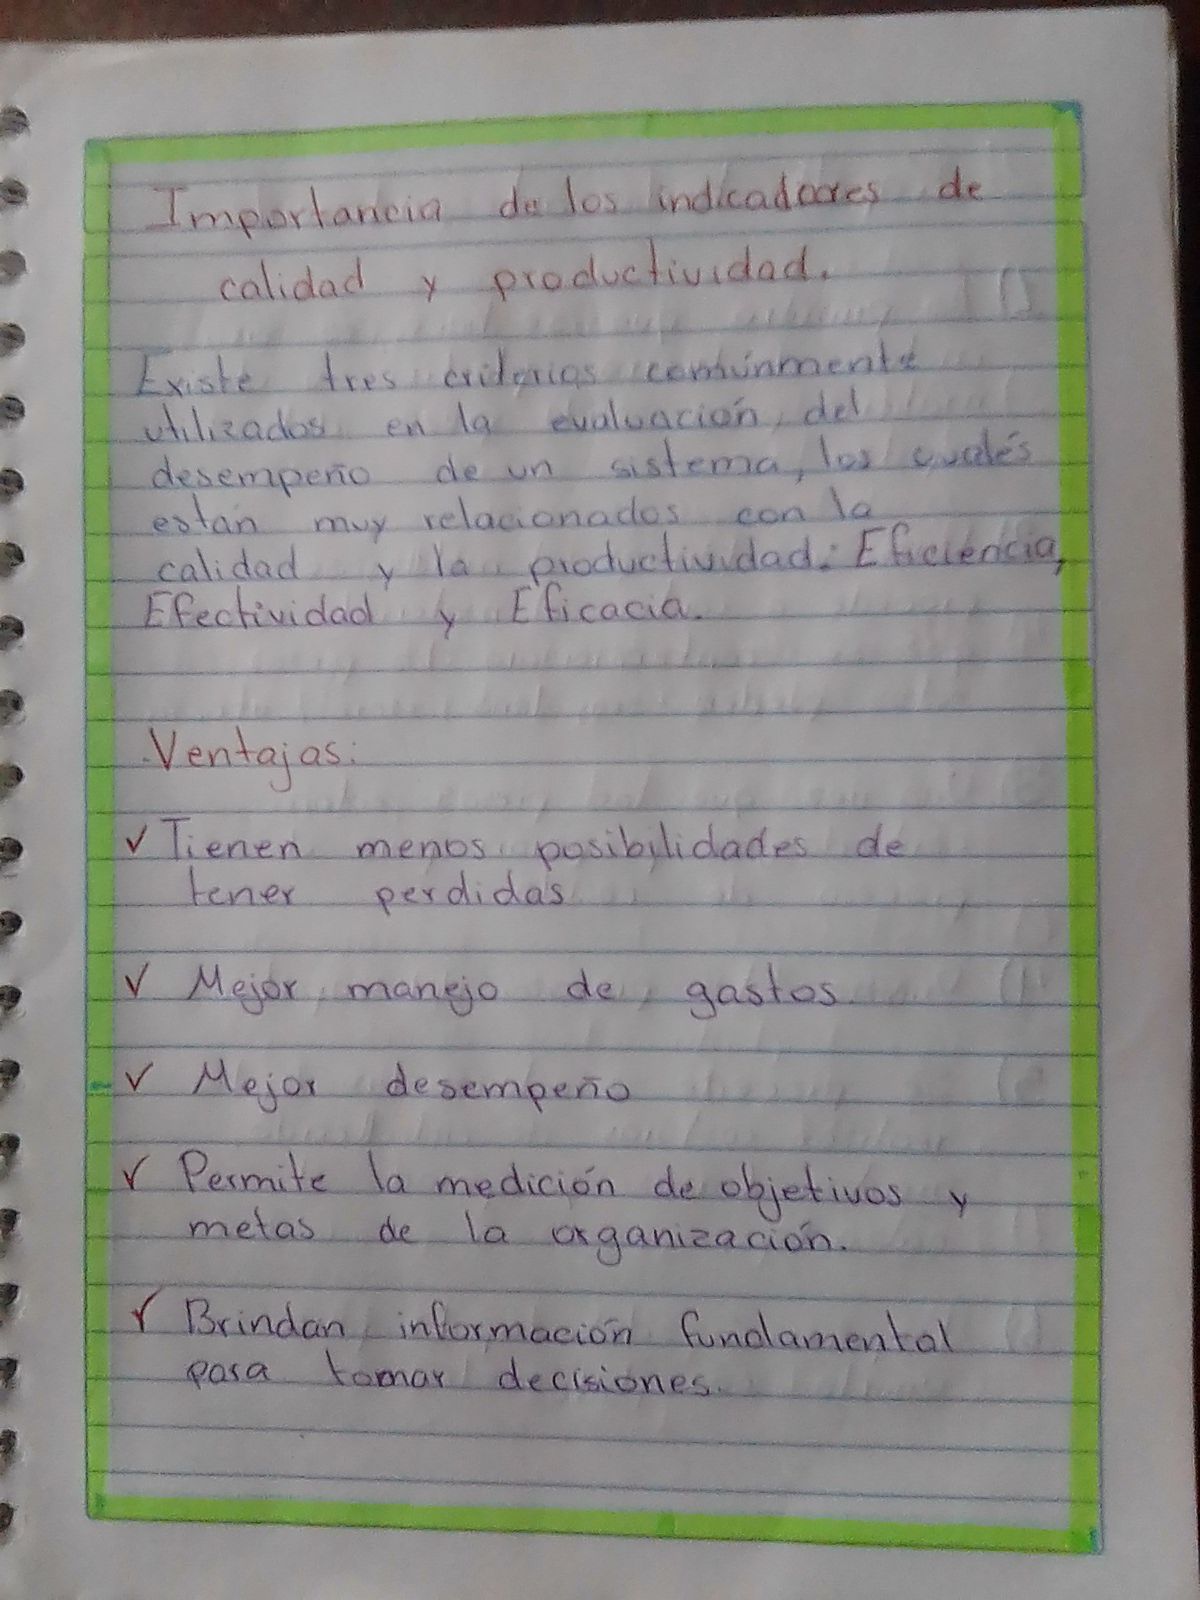 Importancia de los indicadores de
calidad y productividad.
Existe tres criterios comúnmente
utilizados en la evaluación del
desempeño de un sistema, los cuáles
estan muy relacionados con la
calidad y la productividad: Eficiencia,
Efectividad y Eficacia.
Ventajas:
✓ Tienen menos posibilidades de
tener perdidas
✓ Mejor manejo de gastos
✓ Mejor desempeño
✓ Permite la medición de objetivos y
metas de la organización.
✓ Brindan información fundamental
para tomar decisiones.